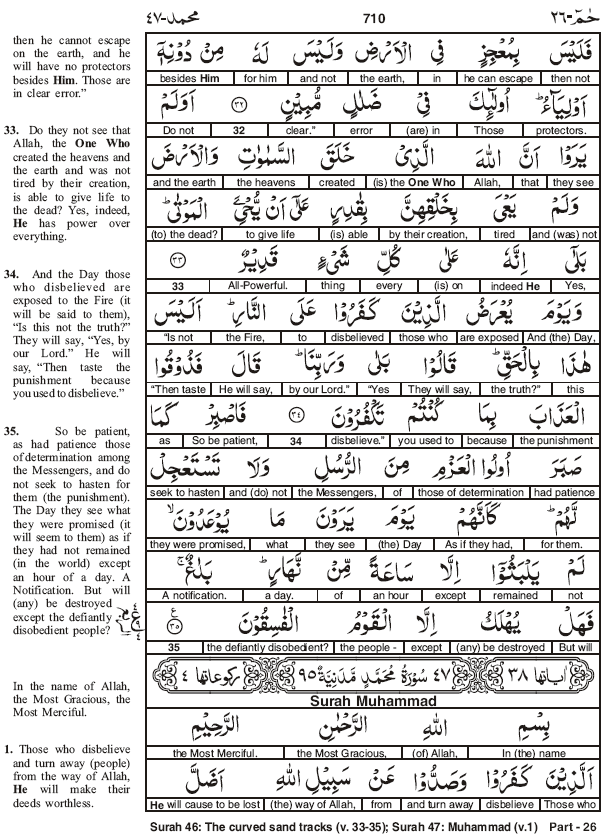 حٰمٓ-٢٦ 710 محمد-٤٧
then he cannot escape
on the earth, and he
will have no protectors
besides Him. Those are
in clear error.”
33. Do they not see that
Allah, the One Who
created the heavens and
the earth and was not
tired by their creation,
is able to give life to
the dead? Yes, indeed,
He has power over
everything.
34. And the Day those
who disbelieved are
exposed to the Fire (it
will be said to them),
“Is this not the truth?”
They will say, “Yes, by
our Lord.” He will
say, “Then taste the
punishment because
you used to disbelieve.”
35. So be patient,
as had patience those
of determination among
the Messengers, and do
not seek to hasten for
them (the punishment).
The Day they see what
they were promised (it
will seem to them) as if
they had not remained
(in the world) except
an hour of a day. A
Notification. But will
(any) be destroyed
except the defiantly
disobedient people?
In the name of Allah,
the Most Gracious, the
Most Merciful.
1. Those who disbelieve
and turn away (people)
from the way of Allah,
He will make their
deeds worthless.
فَلَيْسَ بِمُعْجِزٍ فِي الْاَرْضِ وَلَيْسَ لَهٗ مِنْ دُوْنِهٖٓ
then not he can escape in the earth, and not for him besides Him
اَوْلِيَآءُ ؕ اُولٰٓئِكَ فِيْ ضَلٰلٍ مُّبِيْنٍ ٣٢ اَوَلَمْ
protectors. Those (are) in error clear.” 32 Do not
يَرَوْا اَنَّ اللّٰهَ الَّذِيْ خَلَقَ السَّمٰوٰتِ وَالْاَرْضَ
they see that Allah, (is) the One Who created the heavens and the earth
وَلَمْ يَعْيَ بِخَلْقِهِنَّ بِقٰدِرٍ عَلٰٓى اَنْ يُّحْيِۦَ الْمَوْتٰى ؕ
and (was) not tired by their creation, (is) able to give life (to) the dead?
بَلٰٓى اِنَّهٗ عَلٰى كُلِّ شَيْءٍ قَدِيْرٌ ٣٣
Yes, indeed He (is) on every thing All-Powerful. 33
وَيَوْمَ يُعْرَضُ الَّذِيْنَ كَفَرُوْا عَلَى النَّارِ ؕ اَلَيْسَ
And (the) Day, are exposed those who disbelieved to the Fire, “Is not
هٰذَا بِالْحَقِّ ؕ قَالُوْا بَلٰى وَرَبِّنَا ؕ قَالَ فَذُوْقُوا
this the truth?” They will say, “Yes by our Lord.” He will say, “Then taste
الْعَذَابَ بِمَا كُنْتُمْ تَكْفُرُوْنَ ٣٤ فَاصْبِرْ كَمَا
the punishment because you used to disbelieve.” 34 So be patient, as
صَبَرَ اُولُوا الْعَزْمِ مِنَ الرُّسُلِ وَلَا تَسْتَعْجِلْ
had patience those of determination of the Messengers, and (do) not seek to hasten
لَّهُمْ ؕ كَاَنَّهُمْ يَوْمَ يَرَوْنَ مَا يُوْعَدُوْنَ ۙ
for them. As if they had, (the) Day they see what they were promised,
لَمْ يَلْبَثُوْٓا اِلَّا سَاعَةً مِّنْ نَّهَارٍ ؕ بَلٰغٌ ۚ
not remained except an hour of a day. A notification.
فَهَلْ يُهْلَكُ اِلَّا الْقَوْمُ الْفٰسِقُوْنَ ٣٥
But will (any) be destroyed except the people - the defiantly disobedient? 35
اٰيَاتُهَا ٣٨ ٤٧ سُوْرَةُ مُحَمَّدٍ مَّدَنِيَّةٌ ٩٥ رُكُوْعَاتُهَا ٤
Surah Muhammad
بِسْمِ اللّٰهِ الرَّحْمٰنِ الرَّحِيْمِ
In (the) name (of) Allah, the Most Gracious, the Most Merciful.
اَلَّذِيْنَ كَفَرُوْا وَصَدُّوْا عَنْ سَبِيْلِ اللّٰهِ اَضَلَّ
Those who disbelieve and turn away from (the) way of Allah, He will cause to be lost
Surah 46: The curved sand tracks (v. 33-35); Surah 47: Muhammad (v.1) Part - 26